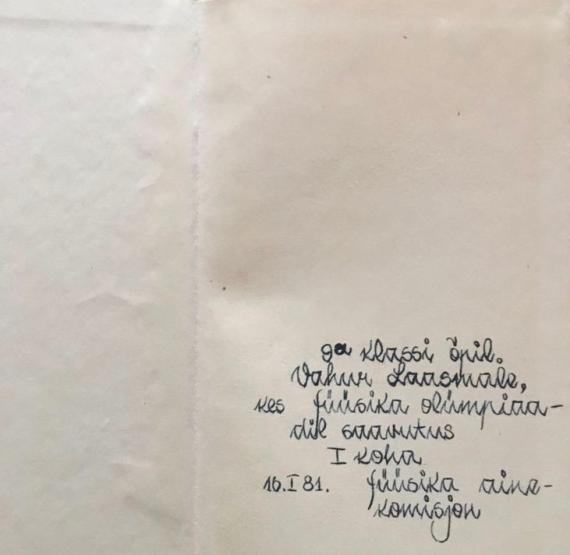 9a klassi õpil.
Vahur Laasmale,
kes füüsika olümpiaa-
dil saavutus
I koha
16.I 81. füüsika aine-
komisjon